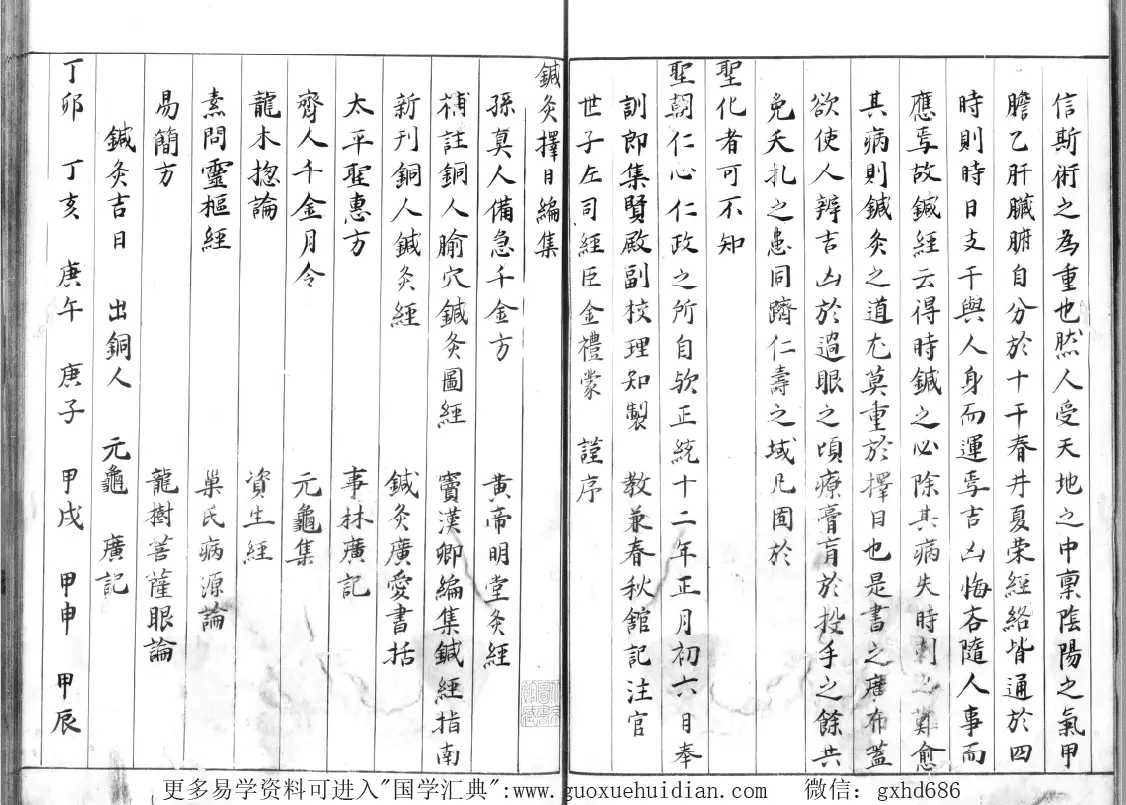 信斯術之為重也然人受天地之中稟陰陽之氣甲
膽乙肝臟腑自分於十干春井夏荣經絡皆通於四
時則時日支干與人身而運焉吉凶悔吝隨人事而
應焉故鍼經云得時鍼之必除其病失時刺之難愈
其病則鍼灸之道尤莫重於擇日也是書之廣布盖
欲使人辨吉凶於過眼之頃療膏肓於投手之餘共
免夭扎之患同躋仁壽之域凡囿於
聖化者可不知
聖朝仁心仁政之所自欤正統十二年正月初六日奉
訓郎集賢殿副校理知製 教兼春秋館記注官
世子左司經臣金禮蒙 謹序
鍼灸擇日編集
孫真人備急千金方 黄帝明堂灸經
補註銅人腧穴鍼灸圖經 竇漢卿編集鍼經指南
新刊銅人鍼灸經 鍼灸廣愛書括
太平聖惠方 事林廣記
齊人千金月令 元龜集
龍木揔論 資生經
素問靈樞經 巢氏病源論
易簡方 龍樹菩薩眼論
鍼灸吉日 出銅人 元龜 廣記
丁卯 丁亥 庚午 庚子 甲戌 甲申 甲辰
更多易学资料可进入"国学汇典":www.guoxuehuidian.com 微信：gxhd686